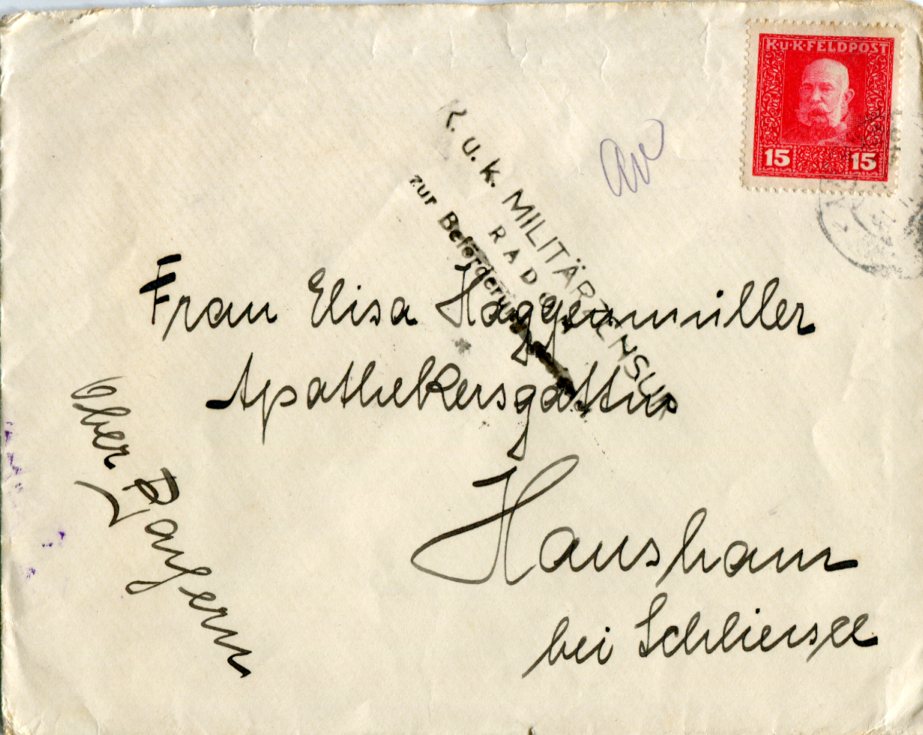 K.u.K.FELDPOST
15 15
K. u. k. MILITÄRZENSUR
RADOM
zur Beförderung
Frau Elisa Haggenmüller
Apothekersgattin
Hausham
bei Schliersee
Ober Bayern